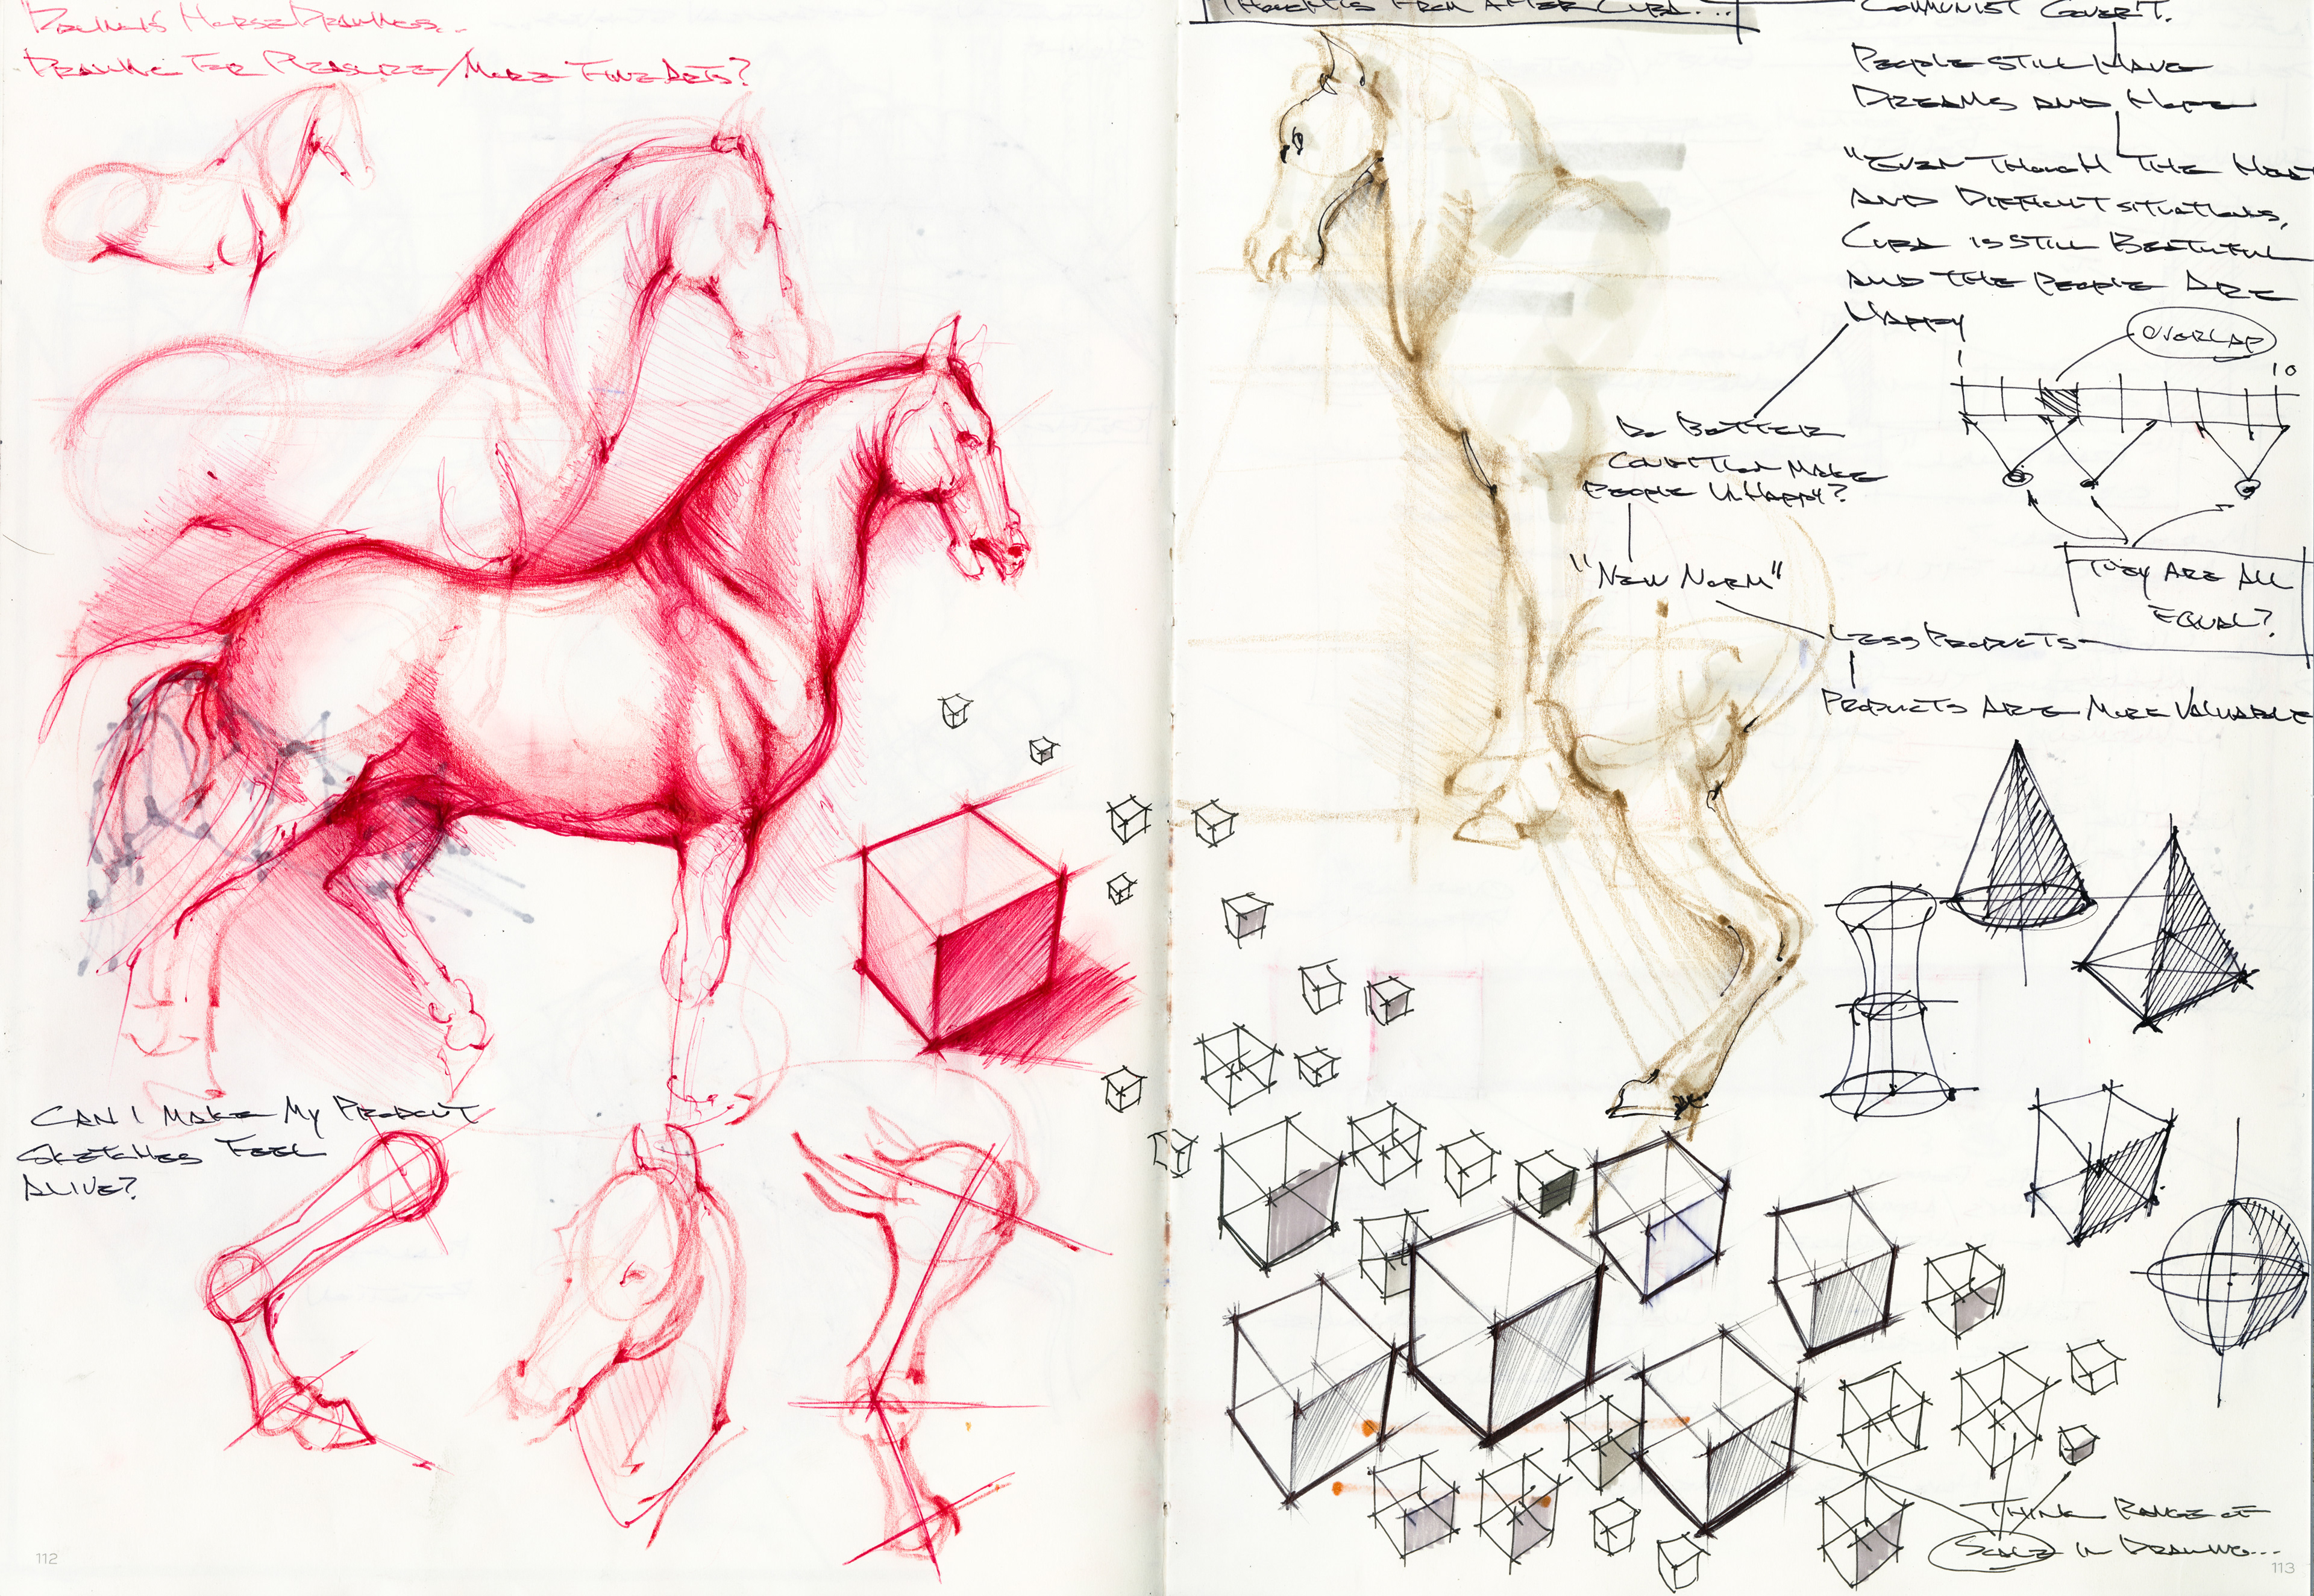 Horse Drawings..
Drawing for Pleasure/More Fine Arts?
Can I Make My Product
Sketches Feel
Alive?
112
Thoughts from after Cuba...
Communist Gover't.
People still Have
Dreams and Hope
"Even though the Most
and Difficult situations,
Cuba is still Beatiful
and the People are
Happy
Overlap
1
10
Do Better
Condition Make
People UnHappy?
"New Norm"
They are all
Equal?
Less Products
Products are More Valuable
Think Range of
Scale in Drawing...
113